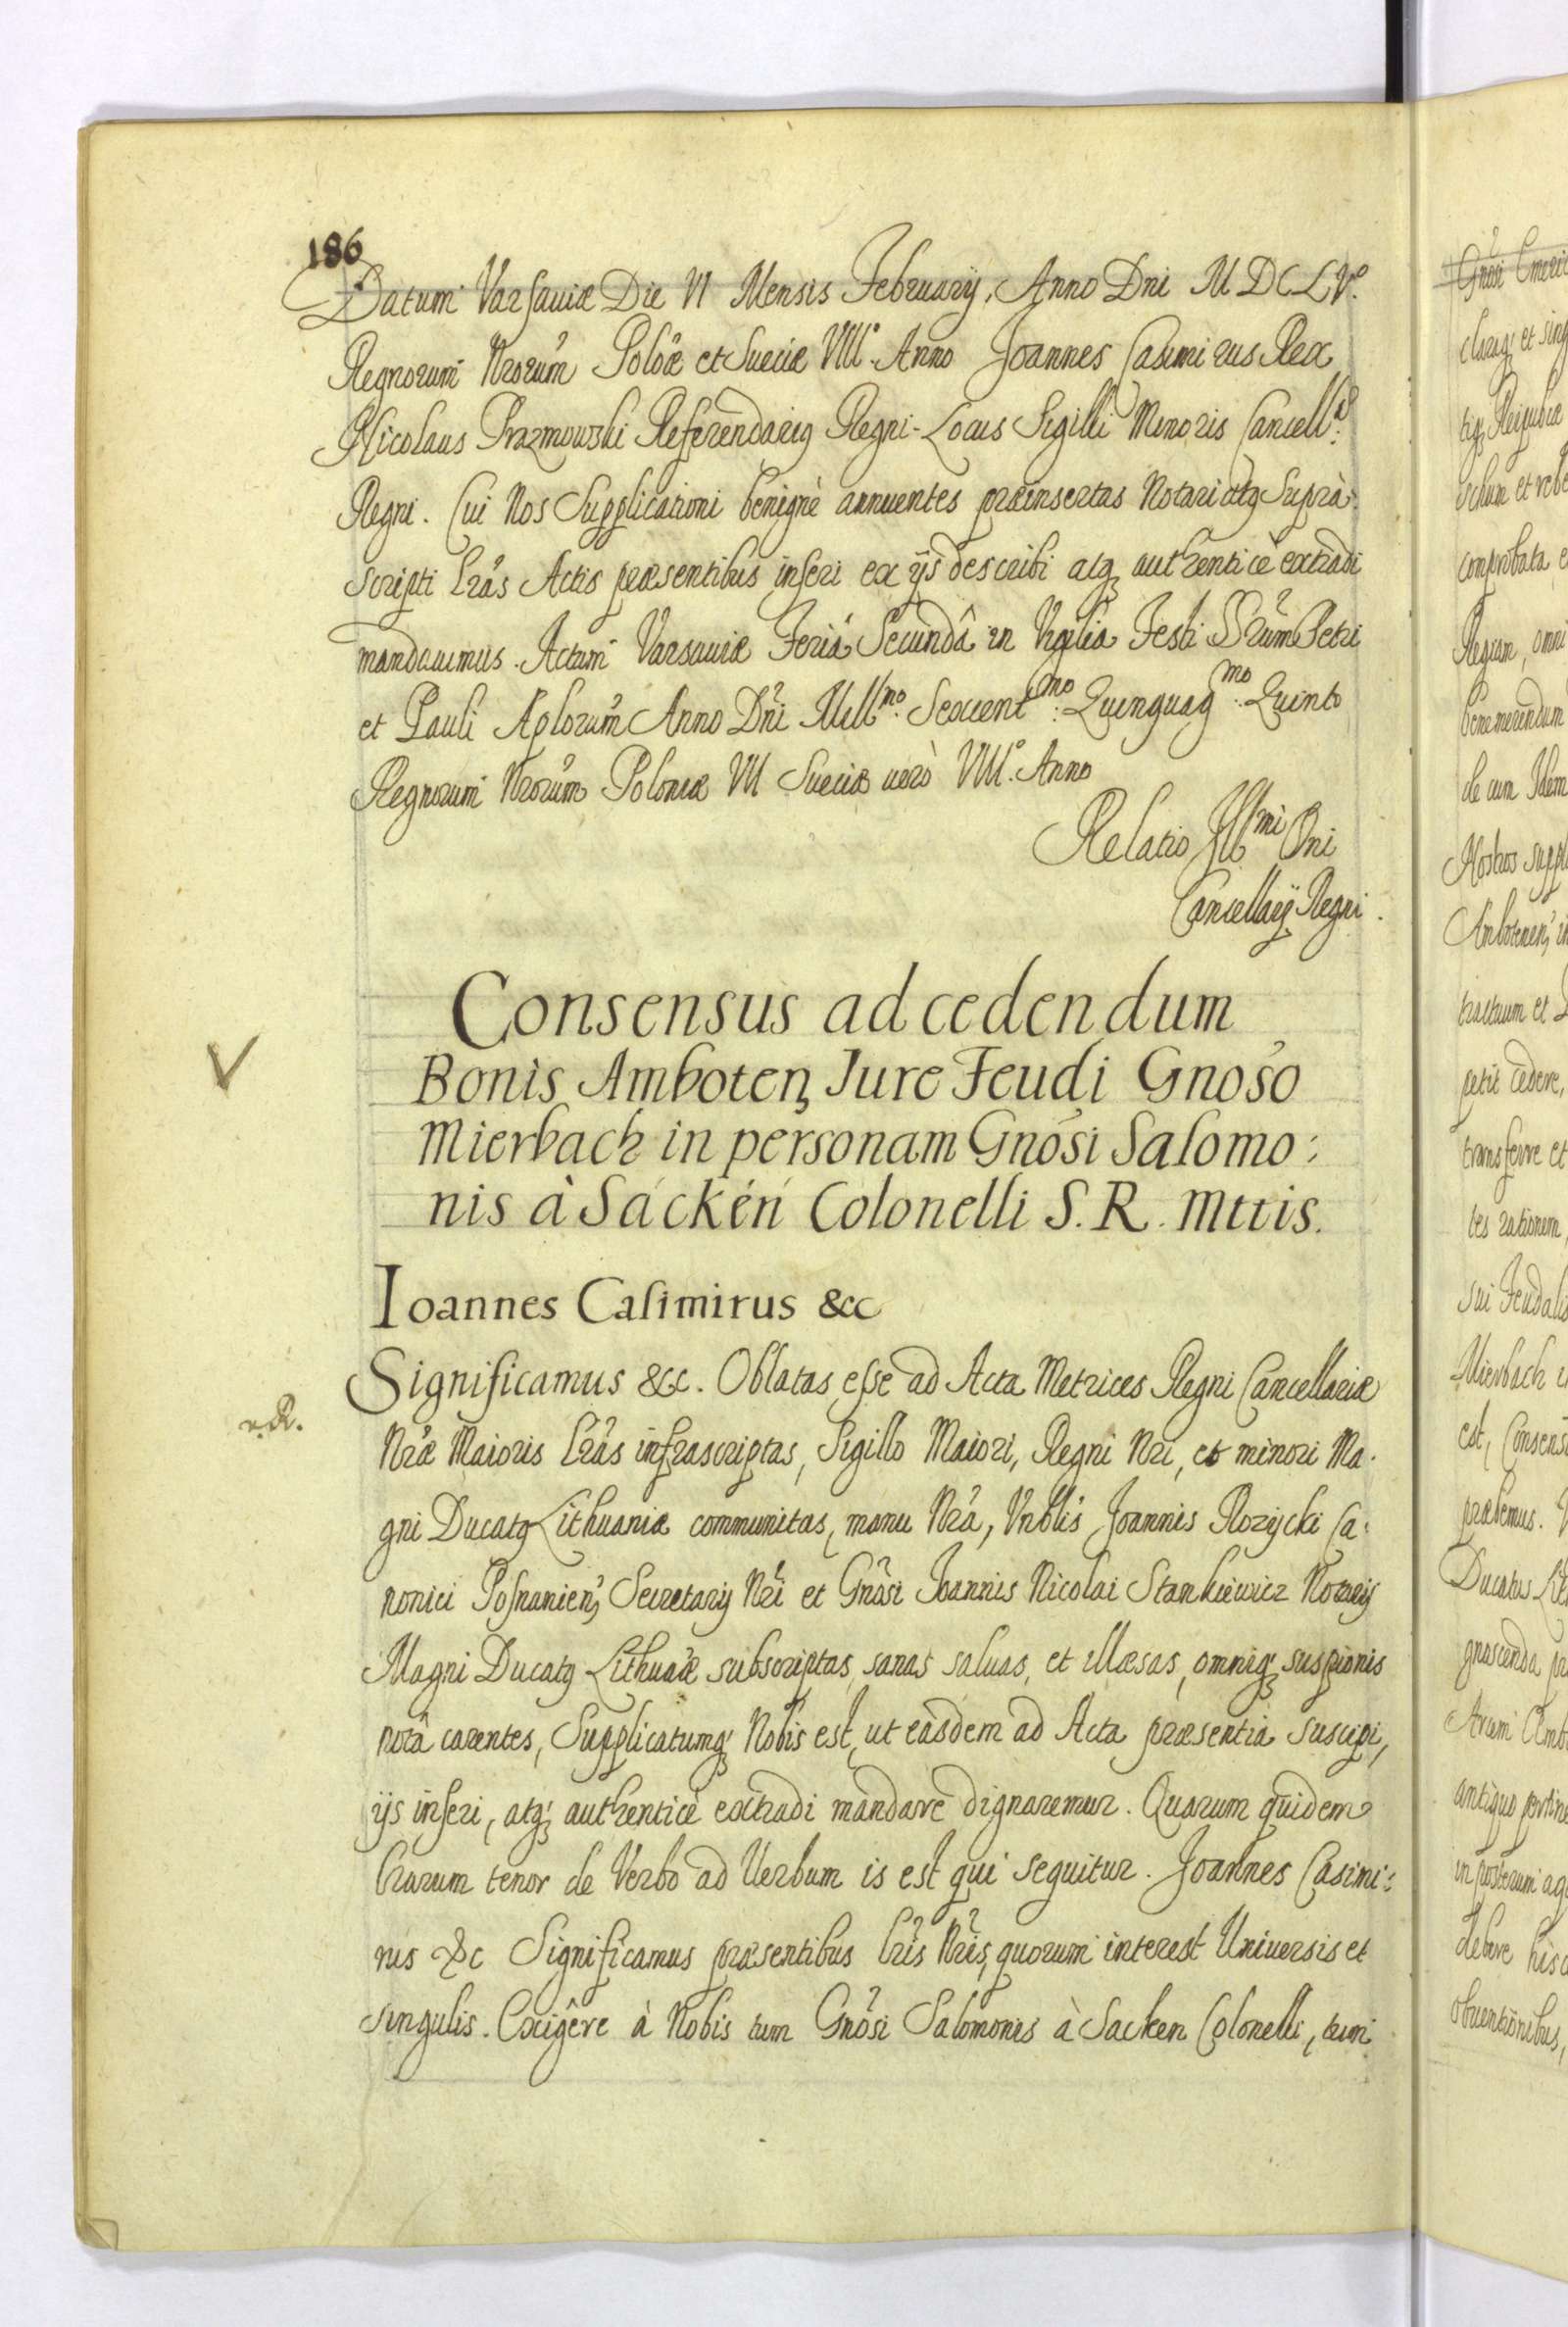 186
Datum Varsaviæ Die VI Mensis February, Anno Dni M DC LVº.
Regnorum Nrorum Poloæ et Sueciæ VIIº. Anno Joannes Casimirus Rex
Nicolaus Prazmowski Referendarig Regni - Locus Sigilli Minoris Cancellæ:
Regni. Cui Nos Supplicationi benignè annuentes præinsertas Notari atq Suprà:
scripti Lrãs Actis præsentibus inseri ex ijs describi atq authenticè extradi
mandauimus. Actum Varsauiæ Feriâ Secundâ in Vigilia Festi SSrum Petri
et Pauli Aplorum Anno Dni Mill^mo: Sexcent^mo: Quinquag^mo: Quinto
Regnorum Nrorum Poloniæ VII Sueciæ uerò VIIIº. Anno
Relatio Ill^mi Dni
Cancellarij Regni.
Consensus ad cedendum
Bonis Amboten, Jure Feudi Gnoso
Mierbach in personam Gnosi Salomo:
nis à Sacken Colonelli S. R. Mttis.
Ioannes Casimirus &c
Significamus &c. Oblatas esse ad Acta Metrices Regni Cancellariæ
r. R.
Nræ Maioris Lrãs infrascriptas, Sigillo Maiori, Regni Nri, et minori Ma.
gni Ducatq Lithuaniæ communitas, manu Nrã, Vnblis Joannis Rozycki Ca:
nonici Posnanien, Secretarij Nri et Gnosi Joannis Nicolai Stankiewicz Notarij
Magni Ducatq Lithuaæ subscriptas, sanas saluas, et illæsas, omniq suspionis
notâ carentes, Supplicatumq Nobis est, ut easdem ad Acta præsentia suscipi,
ijs inseri, atq authenticè extradi mandare dignaremur. Quarum quidem
Lrarum tenor de Verbo ad Verbum is est qui sequitur. Joannes Casimi:
rus &c Significamus præsentibus Lris Nris, quorum interest Uniuersis et
singulis. Exigere à Nobis tum Gnosi Salomonis à Sacken Colonelli, tum